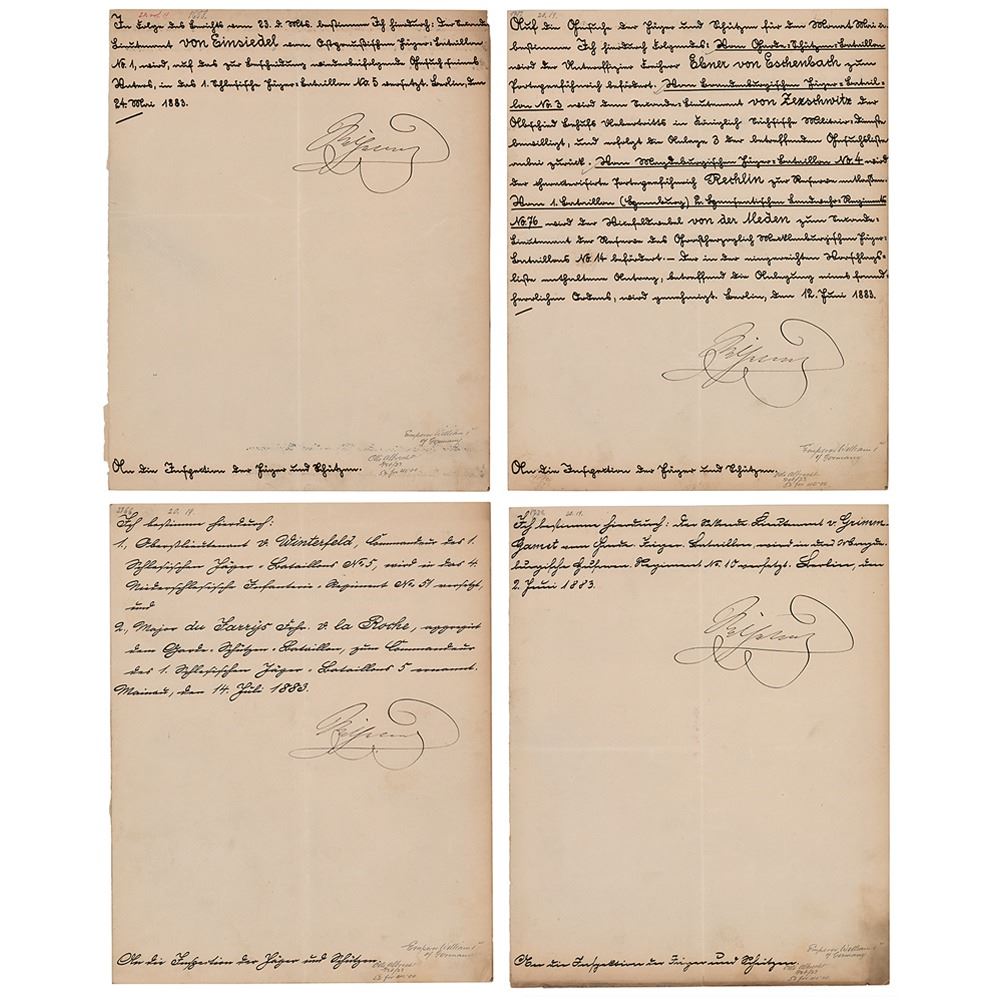 In Folge des Berichts vom 23. d. Mts. bestimme Ich hierdurch: Der Seconde-
Lieutenant von Einsiedel vom Ostpreußischen Jäger-Bataillon
No. 1, wird, auf das zur Bescheidung wiederbeifolgende Gesuch seines
Vaters, in das 1. Schlesische Jäger-Bataillon No 5 versetzt. Berlin, den
24. Mai 1883.
Wilhelm
Emperor William I
of Germany
Otto Albrecht
An die Inspection der Jäger und Schützen.
20. 19.
Auf die Gesuche der Jäger und Schützen für den Monat Mai c.
bestimme Ich hierdurch Folgendes: Vom Garde-Schützen-Bataillon
wird der Unteroffizier Freiherr Ebner von Eschenbach zum
Portepeefähnrich befördert. Vom Brandenburgischen Jäger-Batail-
lon No. 3 wird dem Seconde-Lieutenant von Zezschwitz der
Abschied behufs Uebertritts in Königlich Sächsische Militair-Dienste
bewilligt, und erfolgt die Anlage 3 der betreffenden Gesuchsliste
anbei zurück. Vom Magdeburgischen Jäger-Bataillon No. 4 wird
der charakterisirte Portepeefähnrich Rechlin zur Reserve entlassen.
Vom 1. Bataillon 2. Hanseatischen Landwehr-Regiments
No. 76 wird der Vizefeldwebel von der Meden zum Seconde-
Lieutenant der Reserve des Großherzoglich Mecklenburgischen Jäger-
Bataillons No. 14 befördert. – Der in der eingereichten Vorschlags-
liste enthaltene Antrag, betreffend die Anlegung eines fremd-
herrlichen Ordens, wird genehmigt. Berlin, den 12. Juni 1883.
Wilhelm
Emperor William I
of Germany
Otto Albrecht
An die Inspection der Jäger und Schützen.
20. 19.
Ich bestimme hierdurch:
1., Oberstlieutenant v. Winterfeld, Commandeur des 1.
Schlesischen Jäger-Bataillons No 5, wird in das 4.
Niederschlesische Infanterie-Regiment No. 51 versetzt,
und
2., Major du Jarrys Frhr. v. la Roche, aggregirt
dem Garde-Schützen-Bataillon, zum Commandeur
des 1. Schlesischen Jäger-Bataillons 5 ernannt.
Mainau, den 14. Juli 1883.
Wilhelm
Emperor William I
of Germany
Otto Albrecht
An die Inspection der Jäger und Schützen.
20. 19.
Ich bestimme hierdurch: Der Lieutenant v. Grimm
vom Garde Jäger-Bataillon, wird in das Magde-
burgische Husaren-Regiment No. 10 versetzt. Berlin, den
2. Juni 1883.
Wilhelm
Emperor William I
of Germany
Otto Albrecht
An die Inspektion der Jäger und Schützen